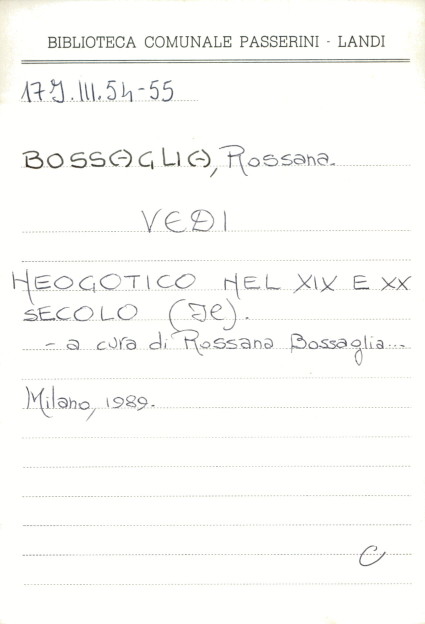 BIBLIOTECA COMUNALE PASSERINI - LANDI
17J.III.54-55
BOSSAGLIA, Rossana.
VEDI
NEOGOTICO NEL XIX E XX
SECOLO (Il).
- a cura di Rossana Bossaglia...
Milano, 1989.
C